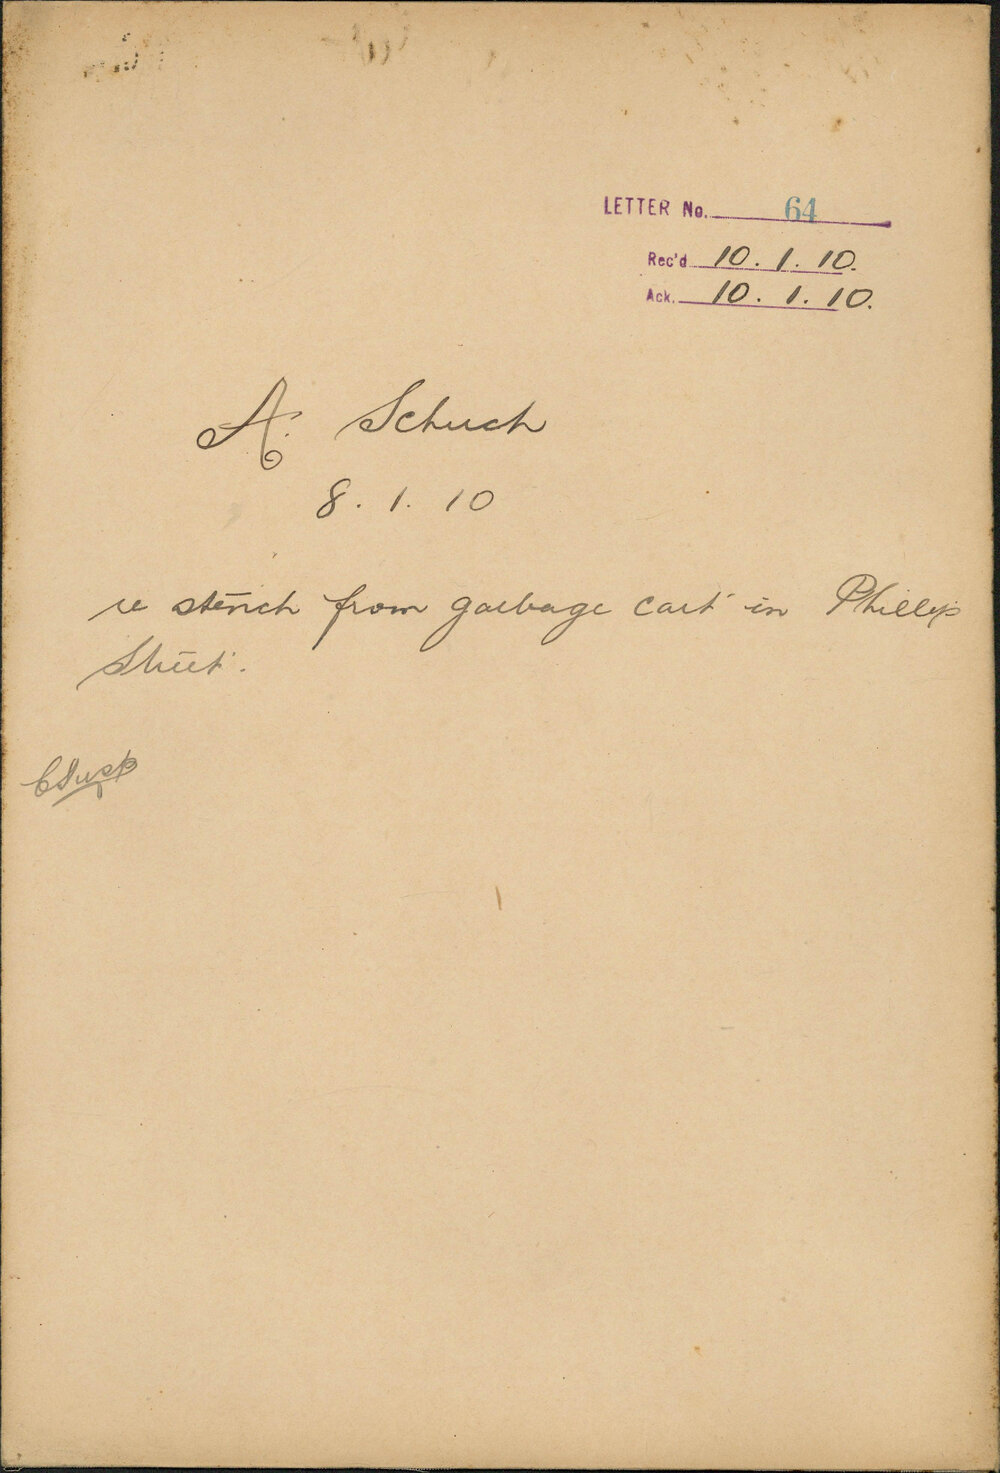 LETTER No. 64
Rec'd 10. 1. 10.
Ack. 10. 1. 10.
A. Schuch
8. 1. 10
re stench from garbage cart in Phillip
Street.